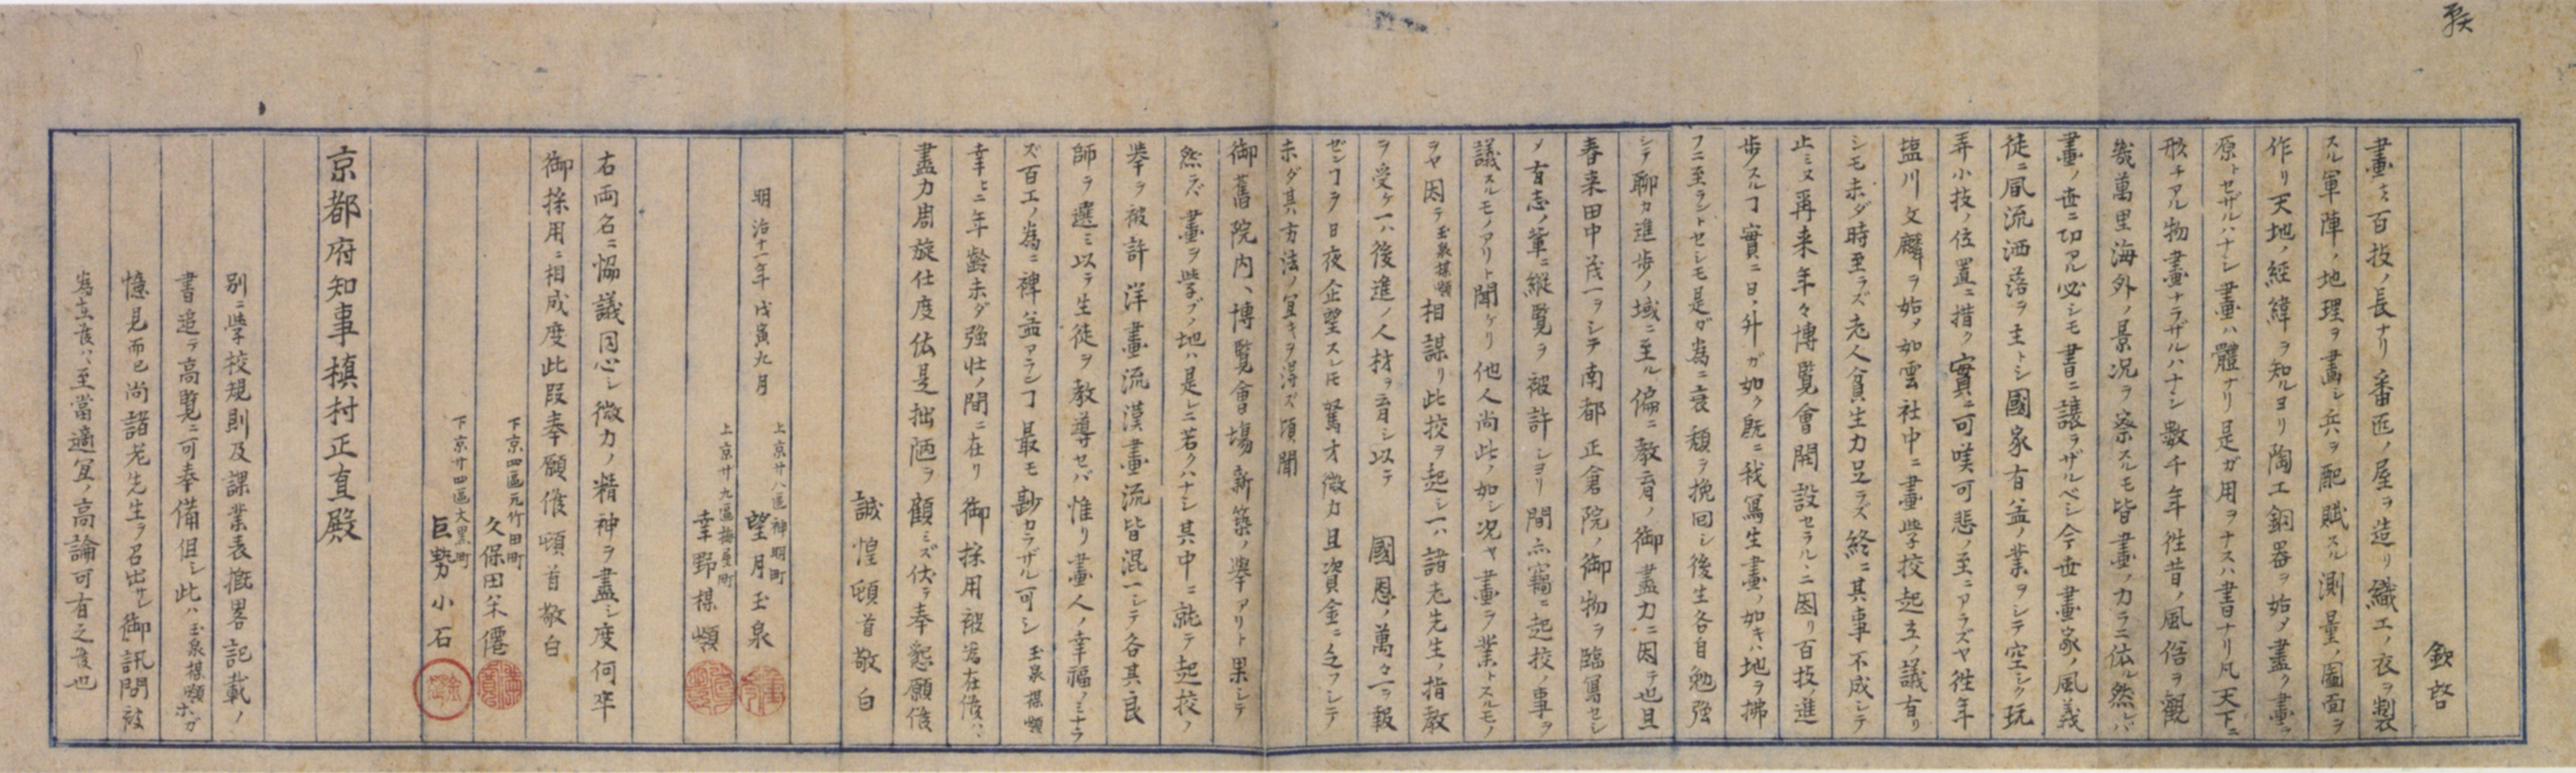 欽啓
畫ハ百技ノ長ナリ番匠ノ屋ヲ造リ織工ノ衣ヲ製
スル軍陣ノ地理ヲ畵シ兵ヲ配賦スル測量ノ圖面ヲ
作リ天地ノ經緯ヲ知ルヨリ陶工銅器ヲ始メ盡ク畫ヲ
原トセザルハナシ畫ハ體ナリ是ガ用ヲナスハ書ナリ凡天下ニ
形チアル物畫ナラザルハナシ數千年徃昔ノ風俗ヲ觀
幾萬里海外ノ景况ヲ察スルモ皆畫ノ力ラニ依ル然レバ
畫ノ世ニ功アル必シモ書ニ讓ラザルベシ今世畫家ノ風義
徒ニ風流洒落ヲ主トシ國家有益ノ業ヲシテ空シク玩
弄小技ノ位置ニ措ク實ニ可嘆可悲ノ至ニアラズヤ徃年
塩川文麟ヲ始メ如雲社中ニ畫學校起立ノ議有リ
シモ未ダ時至ラズ老人貧生力足ラズ終ニ其事不成シテ
止ミヌ再来年々博覧會開設セラルヽニ因リ百技ノ進
歩スルヿ實ニ日ノ升ガ如ク既ニ我寫生畫ノ如キハ地ヲ拂
フニ至ラントセシモ是ガ為ニ衰頽ヲ挽回シ後生各自勉強
シテ聊カ進歩ノ域ニ至ル偏ニ教育ノ御盡力ニ因テ也且
春来田中茂一ヲシテ南都正倉院ノ御物ヲ臨寫セシ
メ有志ノ輩ニ縦覧ヲ被許シヨリ間亦竊ニ起校ノ事ヲ
議スルモノアリト聞ケリ他人尚此ノ如シ况ヤ畫ヲ業トスルモノ
ヲヤ因テ玉泉楳嶺相謀リ此校ヲ起シ一ハ諸老先生ノ指教
ヲ受ケ一ハ後進ノ人材ヲ育シ以テ 國恩ノ萬々一ヲ報
ゼンヿヲ日夜企望スレ𪜈駑才微力且資金ニ乏フシテ
未ダ其方法ノ宜キヲ得ズ頃聞
御舊院内ヘ博覧會塲新築ノ擧アリト果シテ
然ラバ畫ヲ學ブノ地ハ是レニ若クハナシ其中ニ就テ起校ノ
擧ヲ被許洋畫流漢畫流皆混一シテ各其良
師ヲ選ミ以テ生徒ヲ教導セバ惟リ畫人ノ幸福ノミナラ
ズ百工ノ為ニ裨益アランヿ最モ尠カラザル可シ玉泉楳嶺
幸ヒニ年齢未ダ強壮ノ間ニ在リ御採用被為在候ハヽ
盡力周旋仕度依是拙陋ヲ顧ミズ伏テ奉懇願候
誠惶頓首敬白
明治十一年戊寅九月
上京廿八區神明町
望月玉泉
上京廿九區梅屋町
幸野楳嶺
右両名ニ協議同心シ微力ノ精神ヲ盡シ度何卒
御採用ニ相成度此段奉願候頓首敬白
下京四區元竹田町
久保田米僊
下京廿四區大黒町
巨勢小石
京都府知事槇村正直殿
別ニ學校規則及課業表概畧記載ノ
書追テ高覧ニ可奉備但シ此ハ玉泉楳嶺ホガ
憶見而已尚諸老先生ヲ召出サレ御訊問被
為在候ハヽ至當適宜ノ高論可有之候也